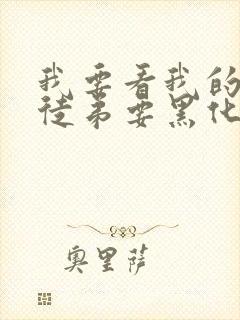 我要看我的
徒弟要黑化
奥里萨